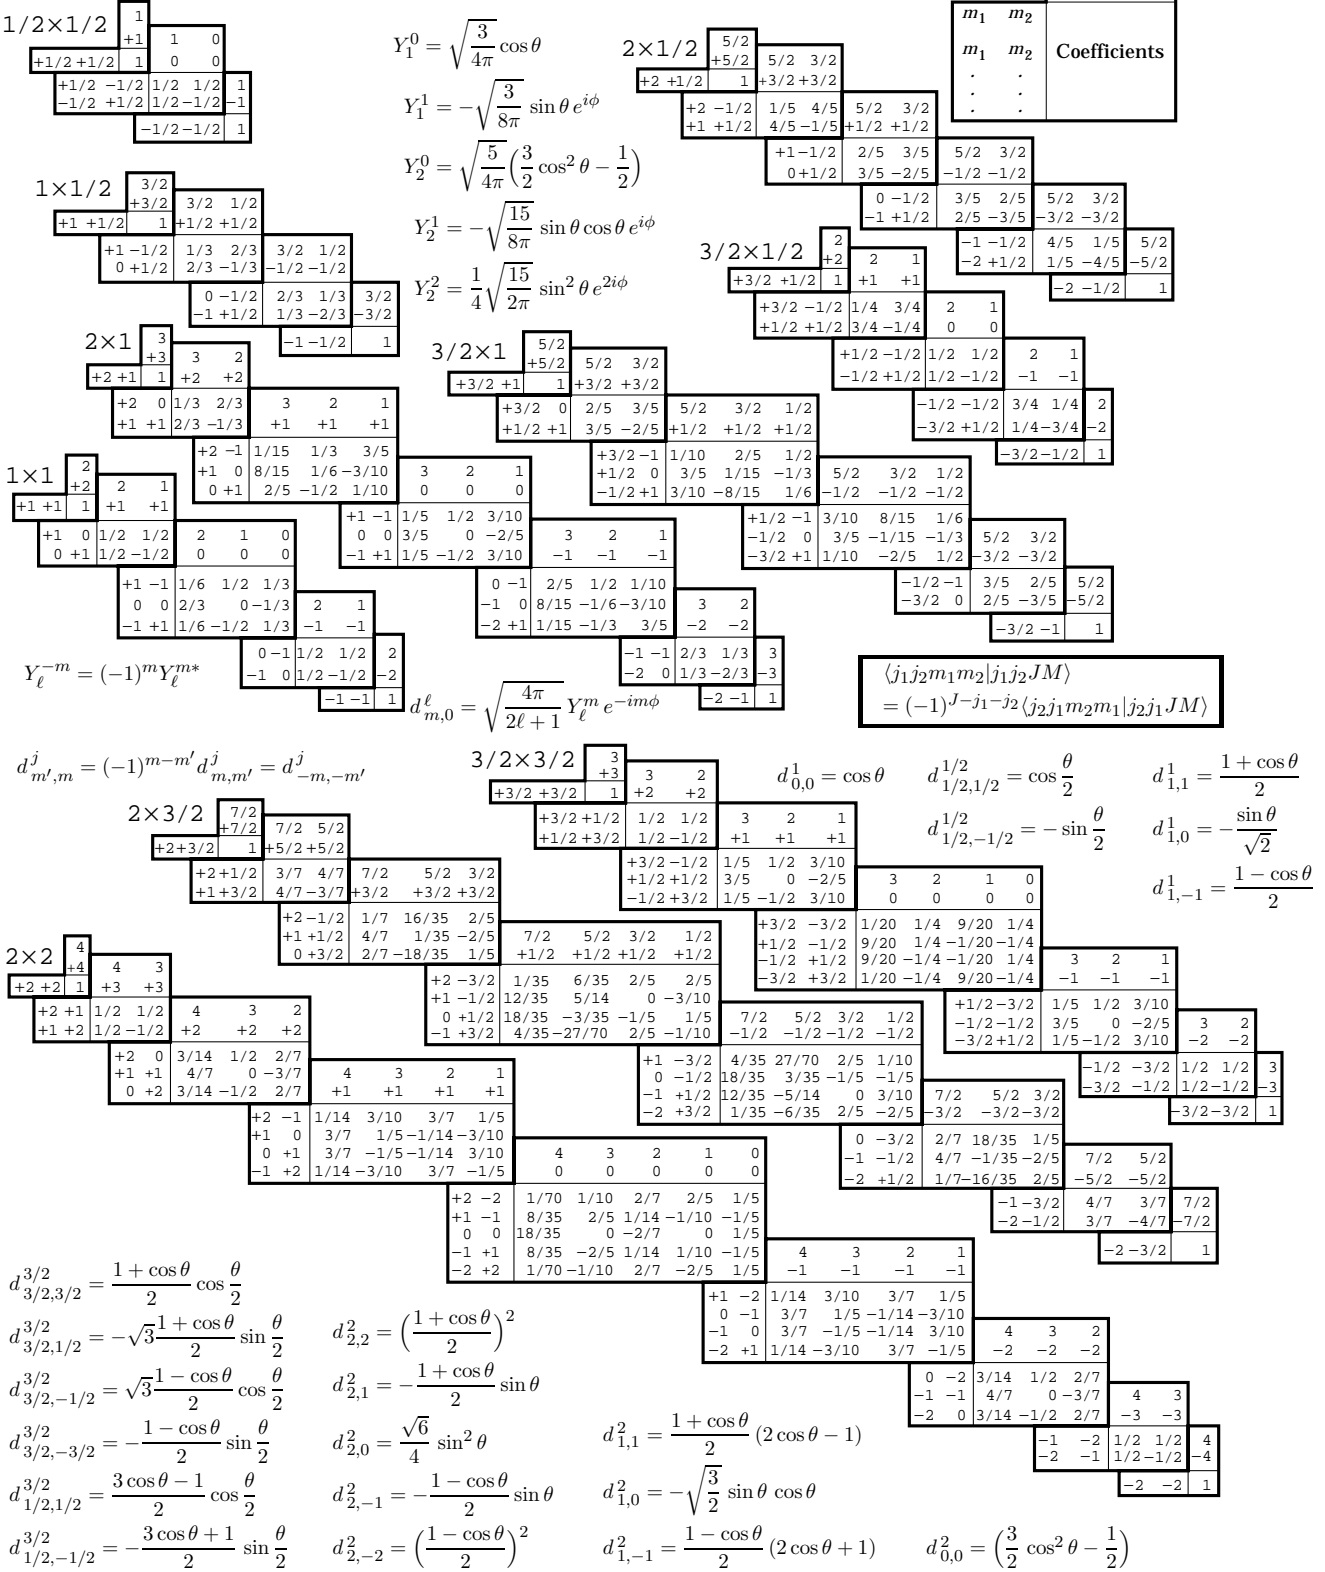 1/2×1/2
1
+1 1 0
+1/2 +1/2 1 0 0
+1/2 −1/2 1/2 1/2 1
−1/2 +1/2 1/2 −1/2 −1
−1/2 −1/2 1
Y_1^0 = √(3/4π) cos θ
Y_1^1 = −√(3/8π) sin θ e^{iϕ}
Y_2^0 = √(5/4π) (3/2 cos² θ − 1/2)
Y_2^1 = −√(15/8π) sin θ cos θ e^{iϕ}
Y_2^2 = 1/4 √(15/2π) sin² θ e^{2iϕ}
2×1/2
5/2
+5/2 5/2 3/2
+2 +1/2 1 +3/2 +3/2
+2 −1/2 1/5 4/5 5/2 3/2
+1 +1/2 4/5 −1/5 +1/2 +1/2
+1 −1/2 2/5 3/5 5/2 3/2
0 +1/2 3/5 −2/5 −1/2 −1/2
0 −1/2 3/5 2/5 5/2 3/2
−1 +1/2 2/5 −3/5 −3/2 −3/2
−1 −1/2 4/5 1/5 5/2
−2 +1/2 1/5 −4/5 −5/2
−2 −1/2 1
m_1 m_2
m_1 m_2 Coefficients
. .
. .
. .
1×1/2
3/2
+3/2 3/2 1/2
+1 +1/2 1 +1/2 +1/2
+1 −1/2 1/3 2/3 3/2 1/2
0 +1/2 2/3 −1/3 −1/2 −1/2
0 −1/2 2/3 1/3 3/2
−1 +1/2 1/3 −2/3 −3/2
−1 −1/2 1
3/2×1/2
2
+2 2 1
+3/2 +1/2 1 +1 +1
+3/2 −1/2 1/4 3/4 2 1
+1/2 +1/2 3/4 −1/4 0 0
+1/2 −1/2 1/2 1/2 2 1
−1/2 +1/2 1/2 −1/2 −1 −1
−1/2 −1/2 3/4 1/4 2
−3/2 +1/2 1/4 −3/4 −2
−3/2 −1/2 1
2×1
3
+3 3 2
+2 +1 1 +2 +2
+2 0 1/3 2/3 3 2 1
+1 +1 2/3 −1/3 +1 +1 +1
+2 −1 1/15 1/3 3/5
+1 0 8/15 1/6 −3/10 3 2 1
0 +1 2/5 −1/2 1/10 0 0 0
+1 −1 1/5 1/2 3/10
0 0 3/5 0 −2/5 3 2 1
−1 +1 1/5 −1/2 3/10 −1 −1 −1
0 −1 2/5 1/2 1/10
−1 0 8/15 −1/6 −3/10 3 2
−2 +1 1/15 −1/3 3/5 −2 −2
−1 −1 2/3 1/3 3
−2 0 1/3 −2/3 −3
−2 −1 1
3/2×1
5/2
+5/2 5/2 3/2
+3/2 +1 1 +3/2 +3/2
+3/2 0 2/5 3/5 5/2 3/2 1/2
+1/2 +1 3/5 −2/5 +1/2 +1/2 +1/2
+3/2 −1 1/10 2/5 1/2
+1/2 0 3/5 1/15 −1/3 5/2 3/2 1/2
−1/2 +1 3/10 −8/15 1/6 −1/2 −1/2 −1/2
+1/2 −1 3/10 8/15 1/6
−1/2 0 3/5 −1/15 −1/3 5/2 3/2
−3/2 +1 1/10 −2/5 1/2 −3/2 −3/2
−1/2 −1 3/5 2/5 5/2
−3/2 0 2/5 −3/5 −5/2
−3/2 −1 1
1×1
2
+2 2 1
+1 +1 1 +1 +1
+1 0 1/2 1/2 2 1 0
0 +1 1/2 −1/2 0 0 0
+1 −1 1/6 1/2 1/3
0 0 2/3 0 −1/3 2 1
−1 +1 1/6 −1/2 1/3 −1 −1
0 −1 1/2 1/2 2
−1 0 1/2 −1/2 −2
−1 −1 1
Y_ℓ^{−m} = (−1)^m Y_ℓ^{m∗}
d^ℓ_{m,0} = √(4π/(2ℓ+1)) Y_ℓ^m e^{−imϕ}
⟨j_1 j_2 m_1 m_2|j_1 j_2 J M⟩
= (−1)^{J−j_1−j_2} ⟨j_2 j_1 m_2 m_1|j_2 j_1 J M⟩
d^j_{m′,m} = (−1)^{m−m′} d^j_{m,m′} = d^j_{−m,−m′}
3/2×3/2
3
+3 3 2
+3/2 +3/2 1 +2 +2
+3/2 +1/2 1/2 1/2 3 2 1
+1/2 +3/2 1/2 −1/2 +1 +1 +1
+3/2 −1/2 1/5 1/2 3/10
+1/2 +1/2 3/5 0 −2/5 3 2 1 0
−1/2 +3/2 1/5 −1/2 3/10 0 0 0 0
+3/2 −3/2 1/20 1/4 9/20 1/4
+1/2 −1/2 9/20 1/4 −1/20 −1/4
−1/2 +1/2 9/20 −1/4 −1/20 1/4 3 2 1
−3/2 +3/2 1/20 −1/4 9/20 −1/4 −1 −1 −1
+1/2 −3/2 1/5 1/2 3/10
−1/2 −1/2 3/5 0 −2/5 3 2
−3/2 +1/2 1/5 −1/2 3/10 −2 −2
−1/2 −3/2 1/2 1/2 3
−3/2 −1/2 1/2 −1/2 −3
−3/2 −3/2 1
d^1_{0,0} = cos θ
d^{1/2}_{1/2,1/2} = cos θ/2
d^{1/2}_{1/2,−1/2} = − sin θ/2
d^1_{1,1} = (1 + cos θ)/2
d^1_{1,0} = − sin θ/√2
d^1_{1,−1} = (1 − cos θ)/2
2×3/2
7/2
+7/2 7/2 5/2
+2 +3/2 1 +5/2 +5/2
+2 +1/2 3/7 4/7 7/2 5/2 3/2
+1 +3/2 4/7 −3/7 +3/2 +3/2 +3/2
+2 −1/2 1/7 16/35 2/5
+1 +1/2 4/7 1/35 −2/5 7/2 5/2 3/2 1/2
0 +3/2 2/7 −18/35 1/5 +1/2 +1/2 +1/2 +1/2
+2 −3/2 1/35 6/35 2/5 2/5
+1 −1/2 12/35 5/14 0 −3/10
0 +1/2 18/35 −3/35 −1/5 1/5 7/2 5/2 3/2 1/2
−1 +3/2 4/35 −27/70 2/5 −1/10 −1/2 −1/2 −1/2 −1/2
+1 −3/2 4/35 27/70 2/5 1/10
0 −1/2 18/35 3/35 −1/5 −1/5
−1 +1/2 12/35 −5/14 0 3/10 7/2 5/2 3/2
−2 +3/2 1/35 −6/35 2/5 −2/5 −3/2 −3/2 −3/2
0 −3/2 2/7 18/35 1/5
−1 −1/2 4/7 −1/35 −2/5 7/2 5/2
−2 +1/2 1/7 −16/35 2/5 −5/2 −5/2
−1 −3/2 4/7 3/7 7/2
−2 −1/2 3/7 −4/7 −7/2
−2 −3/2 1
2×2
4
+4 4 3
+2 +2 1 +3 +3
+2 +1 1/2 1/2 4 3 2
+1 +2 1/2 −1/2 +2 +2 +2
+2 0 3/14 1/2 2/7
+1 +1 4/7 0 −3/7 4 3 2 1
0 +2 3/14 −1/2 2/7 +1 +1 +1 +1
+2 −1 1/14 3/10 3/7 1/5
+1 0 3/7 1/5 −1/14 −3/10
0 +1 3/7 −1/5 −1/14 3/10 4 3 2 1 0
−1 +2 1/14 −3/10 3/7 −1/5 0 0 0 0 0
+2 −2 1/70 1/10 2/7 2/5 1/5
+1 −1 8/35 2/5 1/14 −1/10 −1/5
0 0 18/35 0 −2/7 0 1/5
−1 +1 8/35 −2/5 1/14 1/10 −1/5 4 3 2 1
−2 +2 1/70 −1/10 2/7 −2/5 1/5 −1 −1 −1 −1
+1 −2 1/14 3/10 3/7 1/5
0 −1 3/7 1/5 −1/14 −3/10
−1 0 3/7 −1/5 −1/14 3/10 4 3 2
−2 +1 1/14 −3/10 3/7 −1/5 −2 −2 −2
0 −2 3/14 1/2 2/7
−1 −1 4/7 0 −3/7 4 3
−2 0 3/14 −1/2 2/7 −3 −3
−1 −2 1/2 1/2 4
−2 −1 1/2 −1/2 −4
−2 −2 1
d^{3/2}_{3/2,3/2} = (1 + cos θ)/2 cos θ/2
d^{3/2}_{3/2,1/2} = −√3 (1 + cos θ)/2 sin θ/2
d^{3/2}_{3/2,−1/2} = √3 (1 − cos θ)/2 cos θ/2
d^{3/2}_{3/2,−3/2} = − (1 − cos θ)/2 sin θ/2
d^{3/2}_{1/2,1/2} = (3 cos θ − 1)/2 cos θ/2
d^{3/2}_{1/2,−1/2} = − (3 cos θ + 1)/2 sin θ/2
d^2_{2,2} = ((1 + cos θ)/2)^2
d^2_{2,1} = − (1 + cos θ)/2 sin θ
d^2_{2,0} = √6/4 sin² θ
d^2_{2,−1} = − (1 − cos θ)/2 sin θ
d^2_{2,−2} = ((1 − cos θ)/2)^2
d^2_{1,1} = (1 + cos θ)/2 (2 cos θ − 1)
d^2_{1,0} = −√(3/2) sin θ cos θ
d^2_{1,−1} = (1 − cos θ)/2 (2 cos θ + 1)
d^2_{0,0} = (3/2 cos² θ − 1/2)